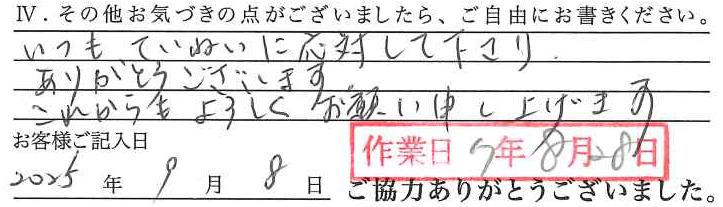 Ⅳ．その他お気づきの点がございましたら、ご自由にお書きください。
いつも ていねいに応対して下さり．
ありがとうございます
これからも よろしく お願い申し上げます
お客様ご記入日
作業日 7年8月28日
2025年 9月 8日
ご協力ありがとうございました。